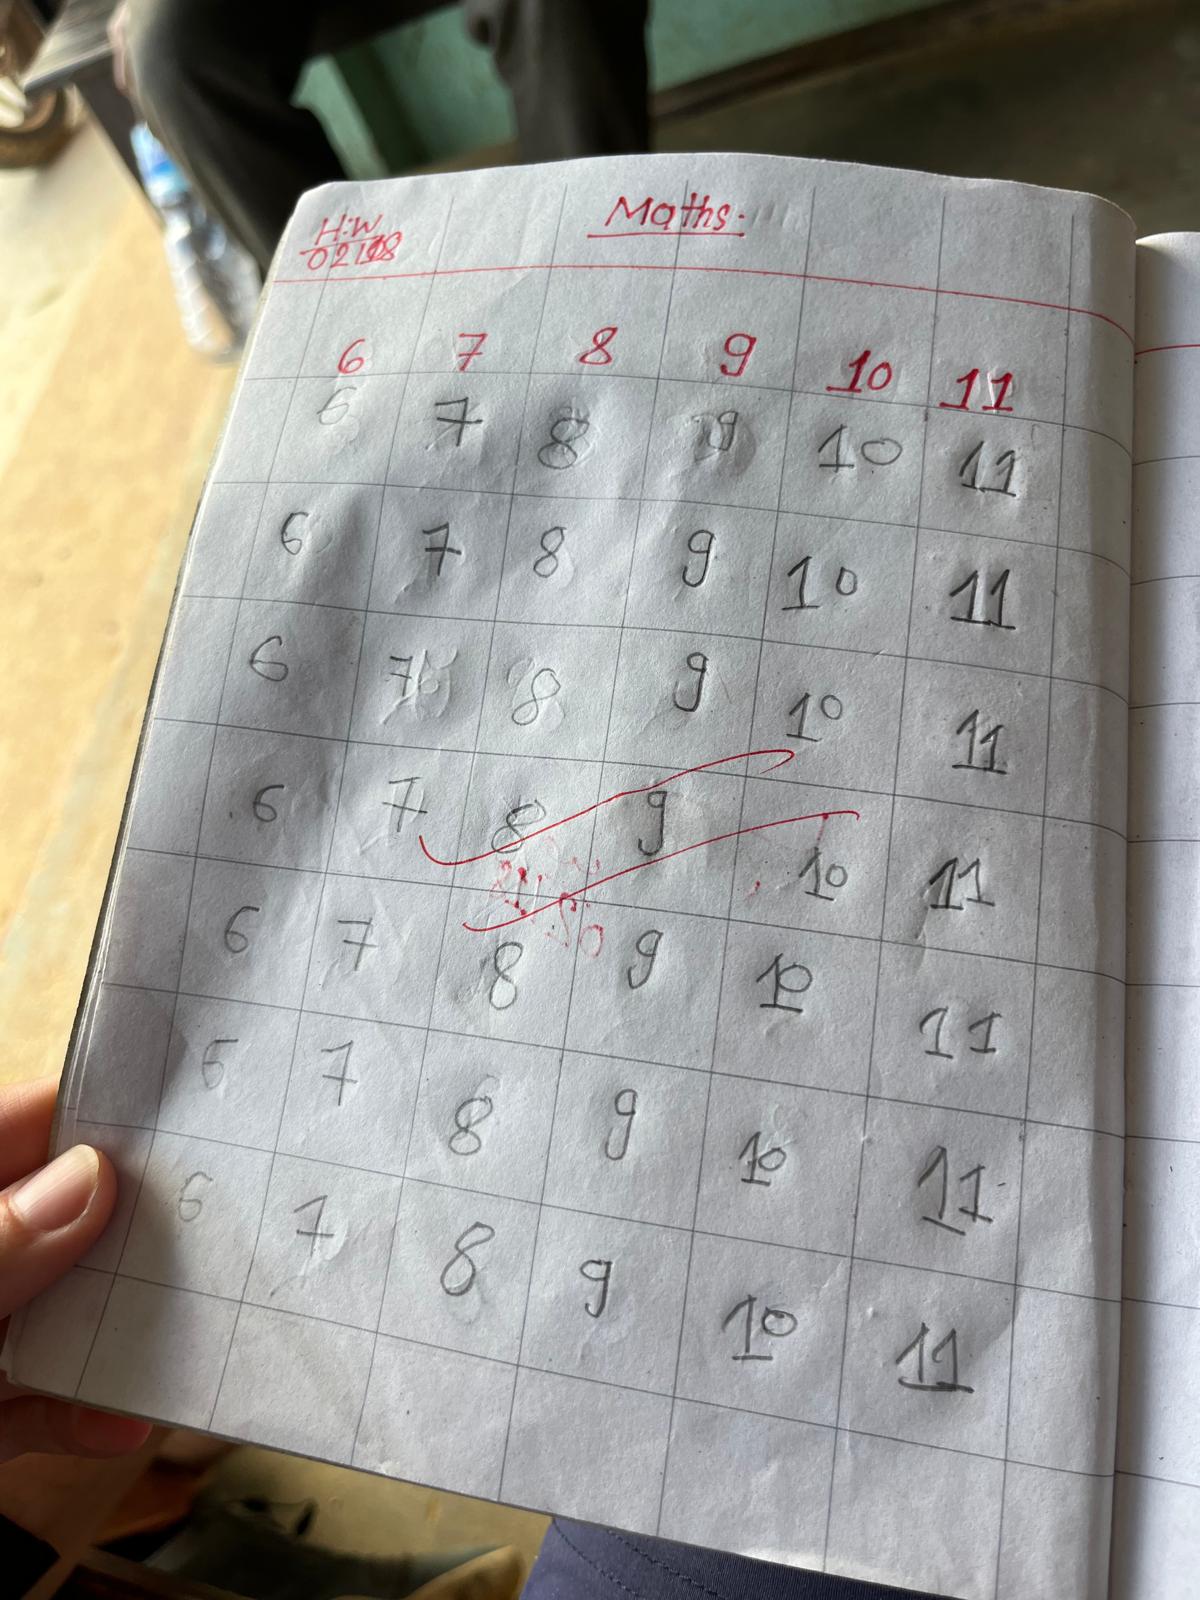 H.W
Maths.
6 7 8 9 10 11
6 7 8 9 10 11
6 7 8 9 10 11
6 7 8 9 10 11
6 7 8 9 10 11
6 7 8 9 10 11
6 7 8 9 10 11
6 7 8 9 10 11